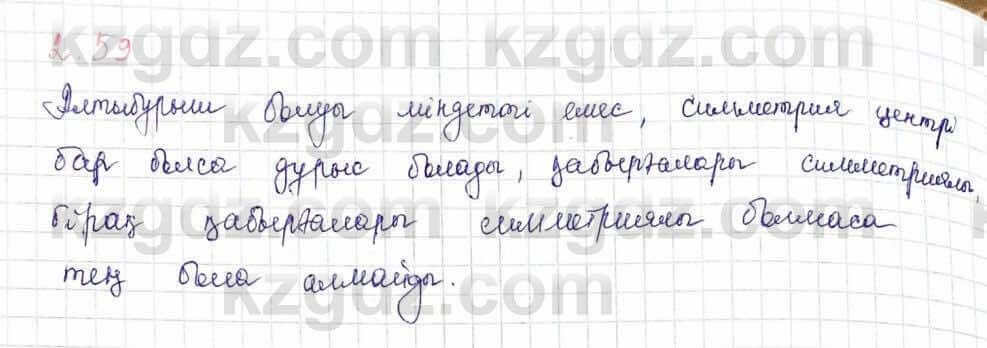 2.59
Алтыбұрыш болуы міндетті емес, симметрия центрі
бар болса дұрыс болады, қабырғалары симметриялы,
бірақ қабырғалары симметриялы болмаса
тең бола алмайды.
kzgdz.com kzgdz.com
kzgdz.com kzgdz.com
kzgdz.com kzgdz.com